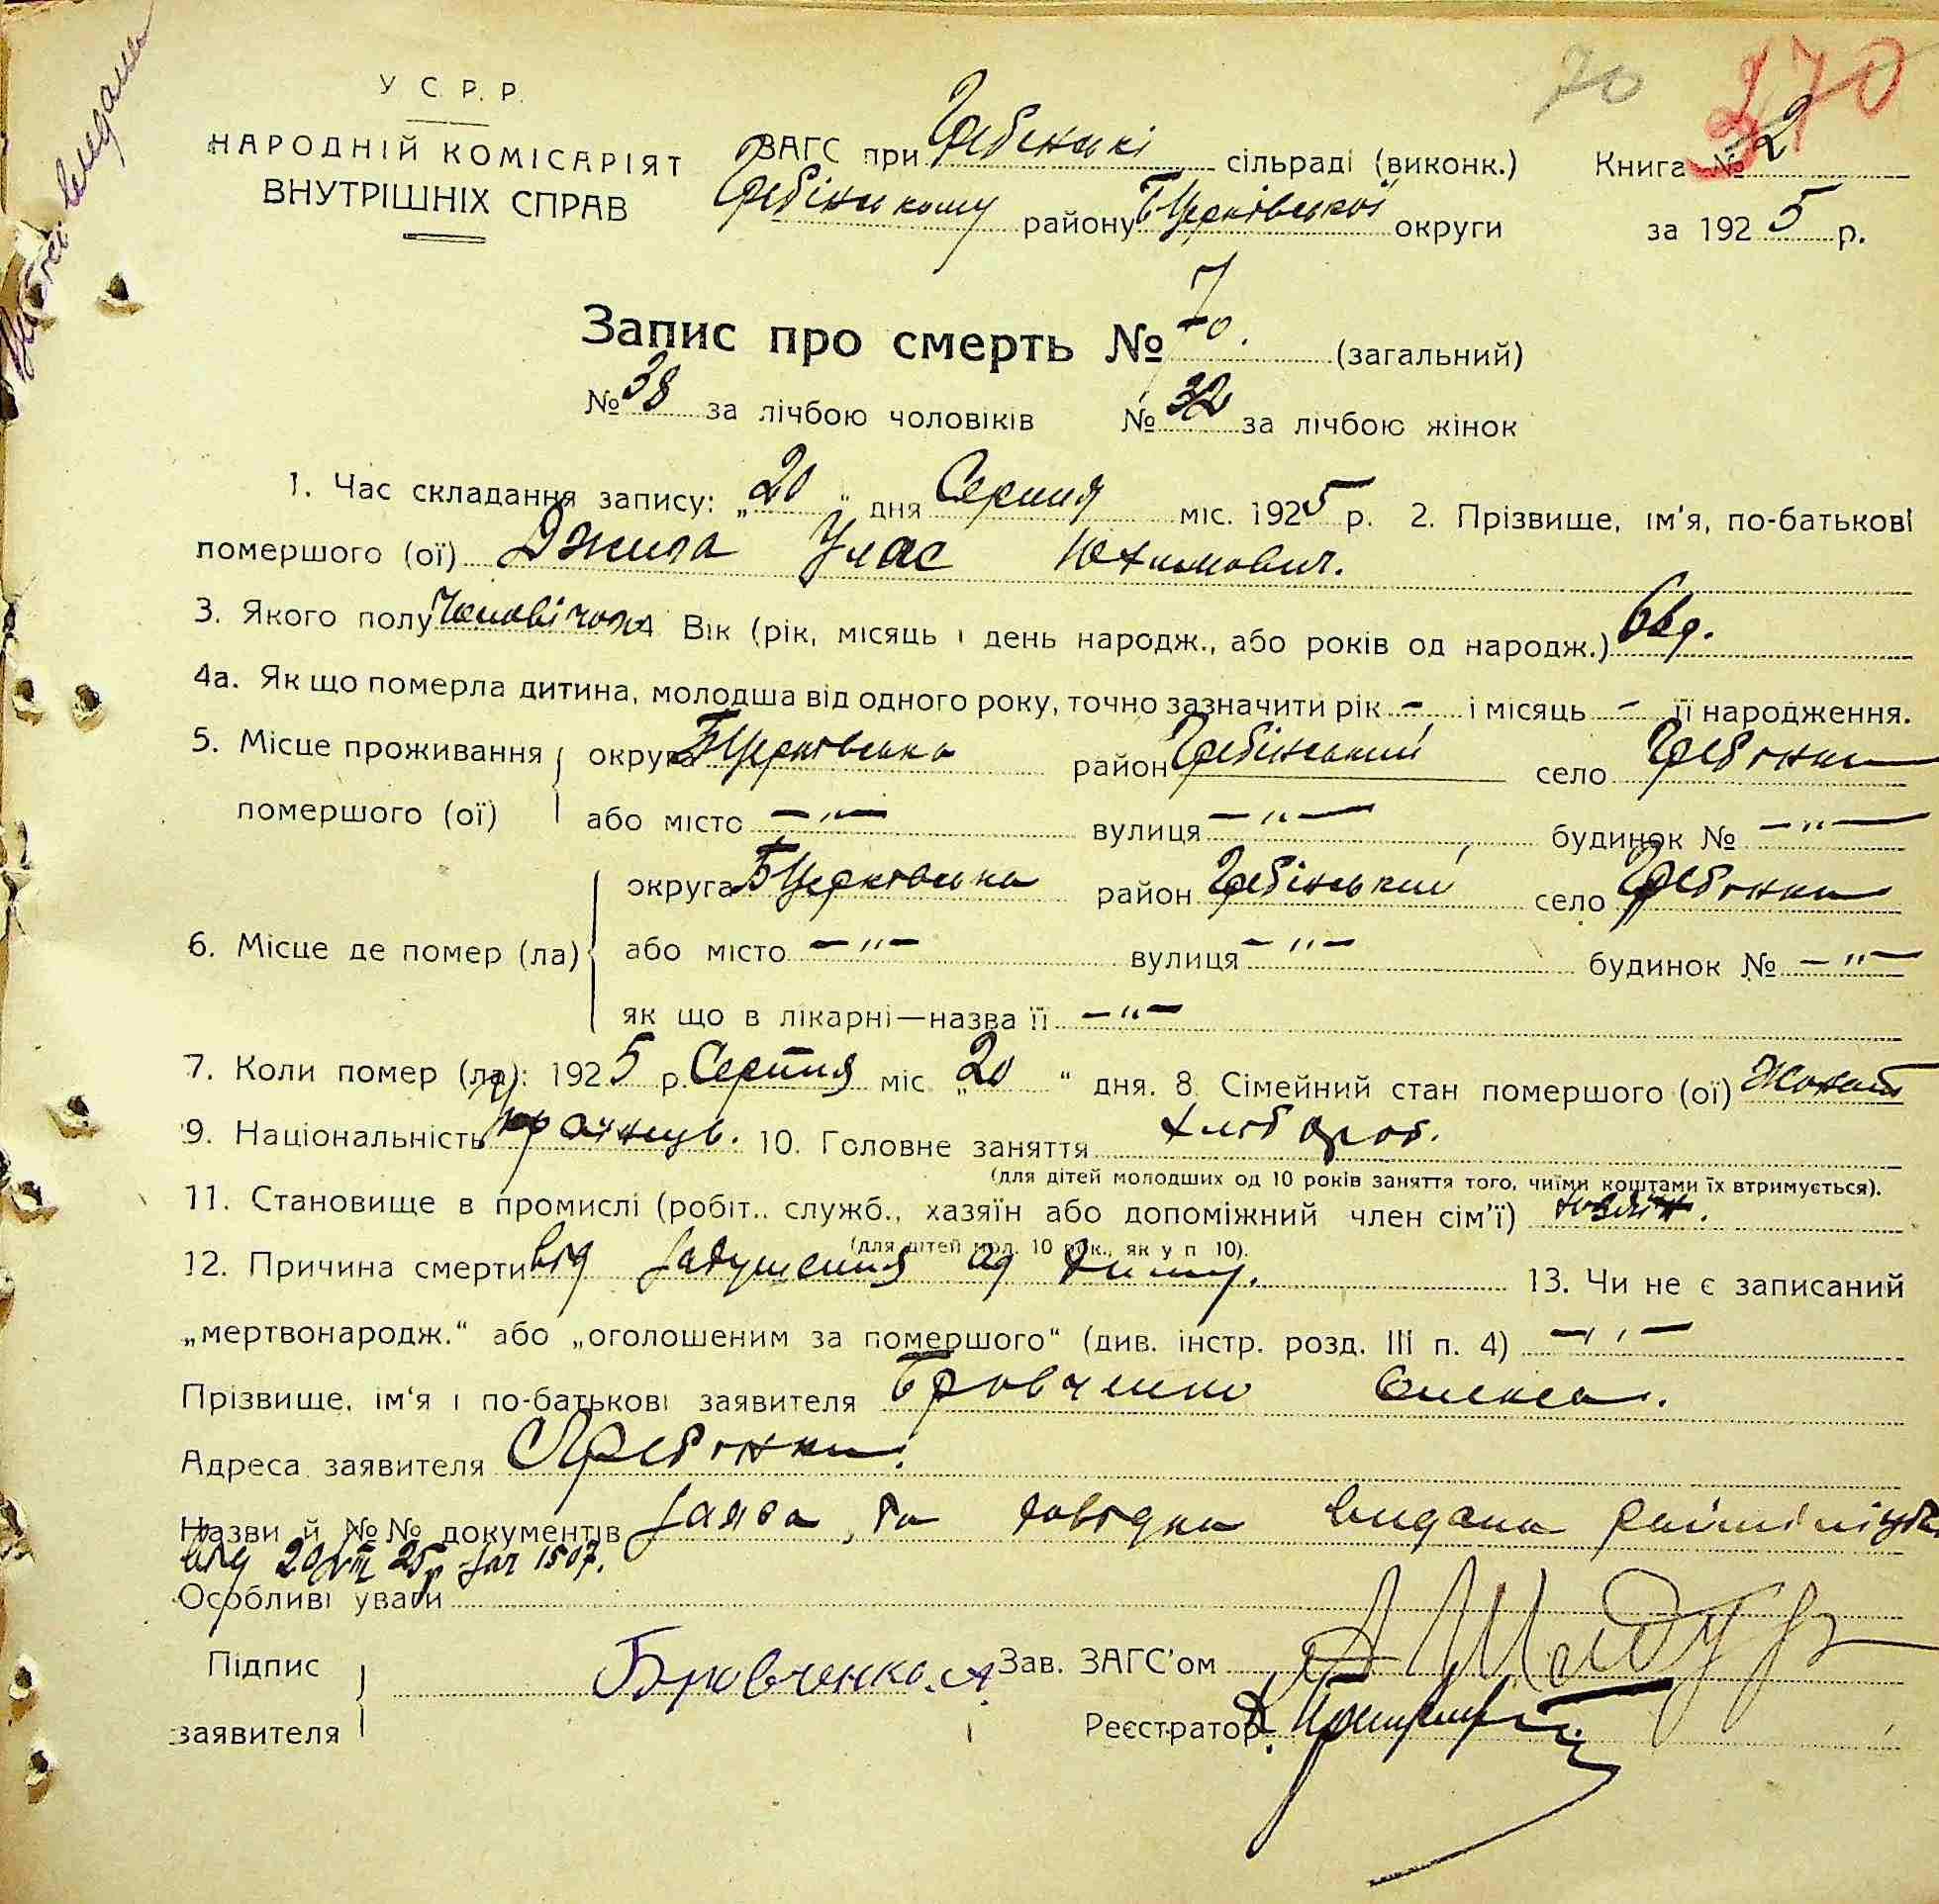 70 270
У С. Р. Р.
НАРОДНІЙ КОМІСАРІЯТ
ВНУТРІШНІХ СПРАВ
ЗАГС при сільраді (виконк.) Книга № 2
району БЦерківської округи за 1925 р.
Запис про смерть № 70. (загальний)
№ 38 за лічбою чоловіків № 32 за лічбою жінок
1. Час складання запису: „20“ дня Серпня міс. 1925 р. 2. Прізвище, ім'я, по-батькові
помершого (ої) Джига Улас Юхимович.
3. Якого полу Чоловічого 4 Вік (рік, місяць і день народж., або років од народж.)
4а. Як що померла дитина, молодша від одного року, точно зазначити рік – і місяць – її народження.
5. Місце проживання округа БЦерківська район Гребінський село Гребінки
помершого (ої) або місто –„– вулиця –„– будинок № –„–
округа БЦерківська район Гребінський село Гребінки
6. Місце де помер (ла) або місто –„– вулиця –„– будинок № –„–
як що в лікарні—назва її –„–
7. Коли помер (ла): 1925 р. Серпня міс „20“ дня. 8. Сімейний стан помершого (ої) Жонат
9. Національність українець. 10. Головне заняття хлібороб.
(для дітей молодших од 10 років заняття того, чиїми коштами їх втримується).
11. Становище в промислі (робіт.. служб., хазяїн або допоміжний член сім'ї) хазяїн.
(для дітей мол. 10 рок., як у п 10).
12. Причина смерти від задушення од диму. 13. Чи не є записаний
„мертвонародж.“ або „оголошеним за помершого“ (див. інстр. розд. III п. 4) –„–
Прізвище, ім'я і по-батькові заявителя Бровченко Олекса.
Адреса заявителя С Гребінки.
Назви й №№ документів заява та довідка видана
від 20/VIII 25р за № 1507.
Особливі уваги
Підпис Бровченко. А. Зав. ЗАГС'ом
заявителя Реєстратор